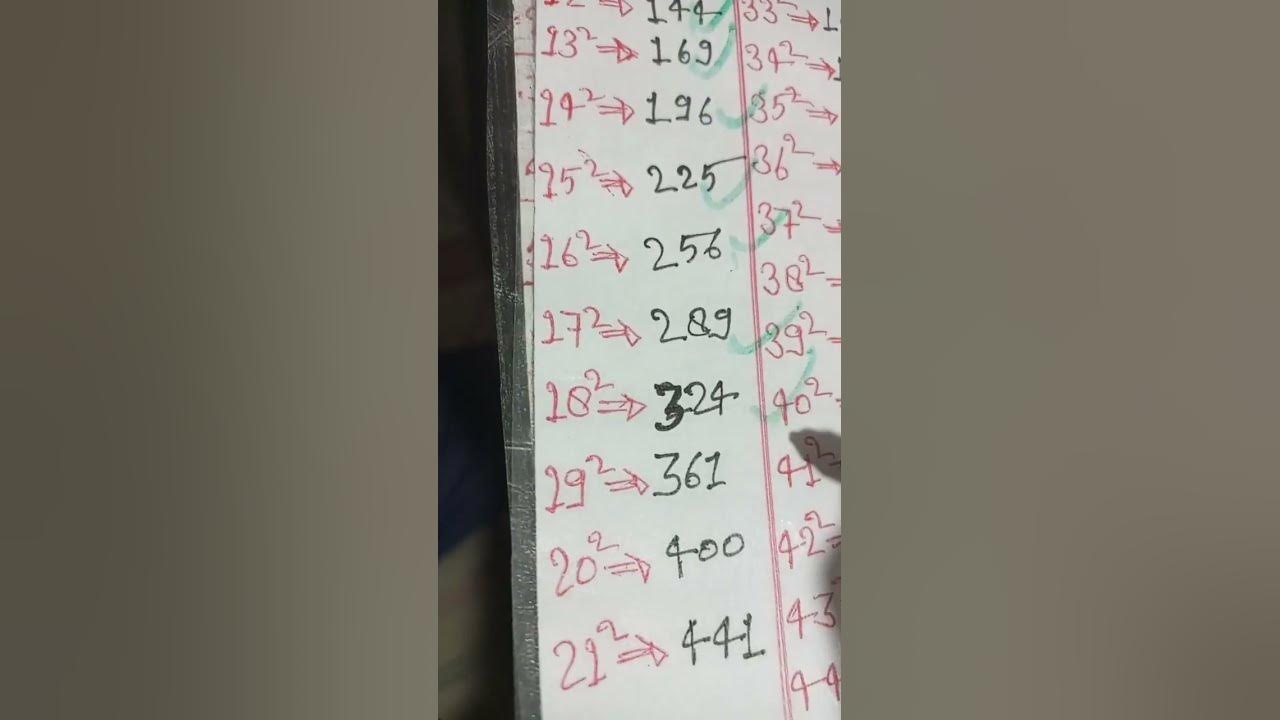 12² ⇒ 144
13² ⇒ 169
14² ⇒ 196
15² ⇒ 225
16² ⇒ 256
17² ⇒ 289
18² ⇒ 324
19² ⇒ 361
20² ⇒ 400
21² ⇒ 441
33² ⇒ 1
34² ⇒
35² ⇒
36² ⇒
37² ⇒
38²
39²
40²
41²
42²
43
44